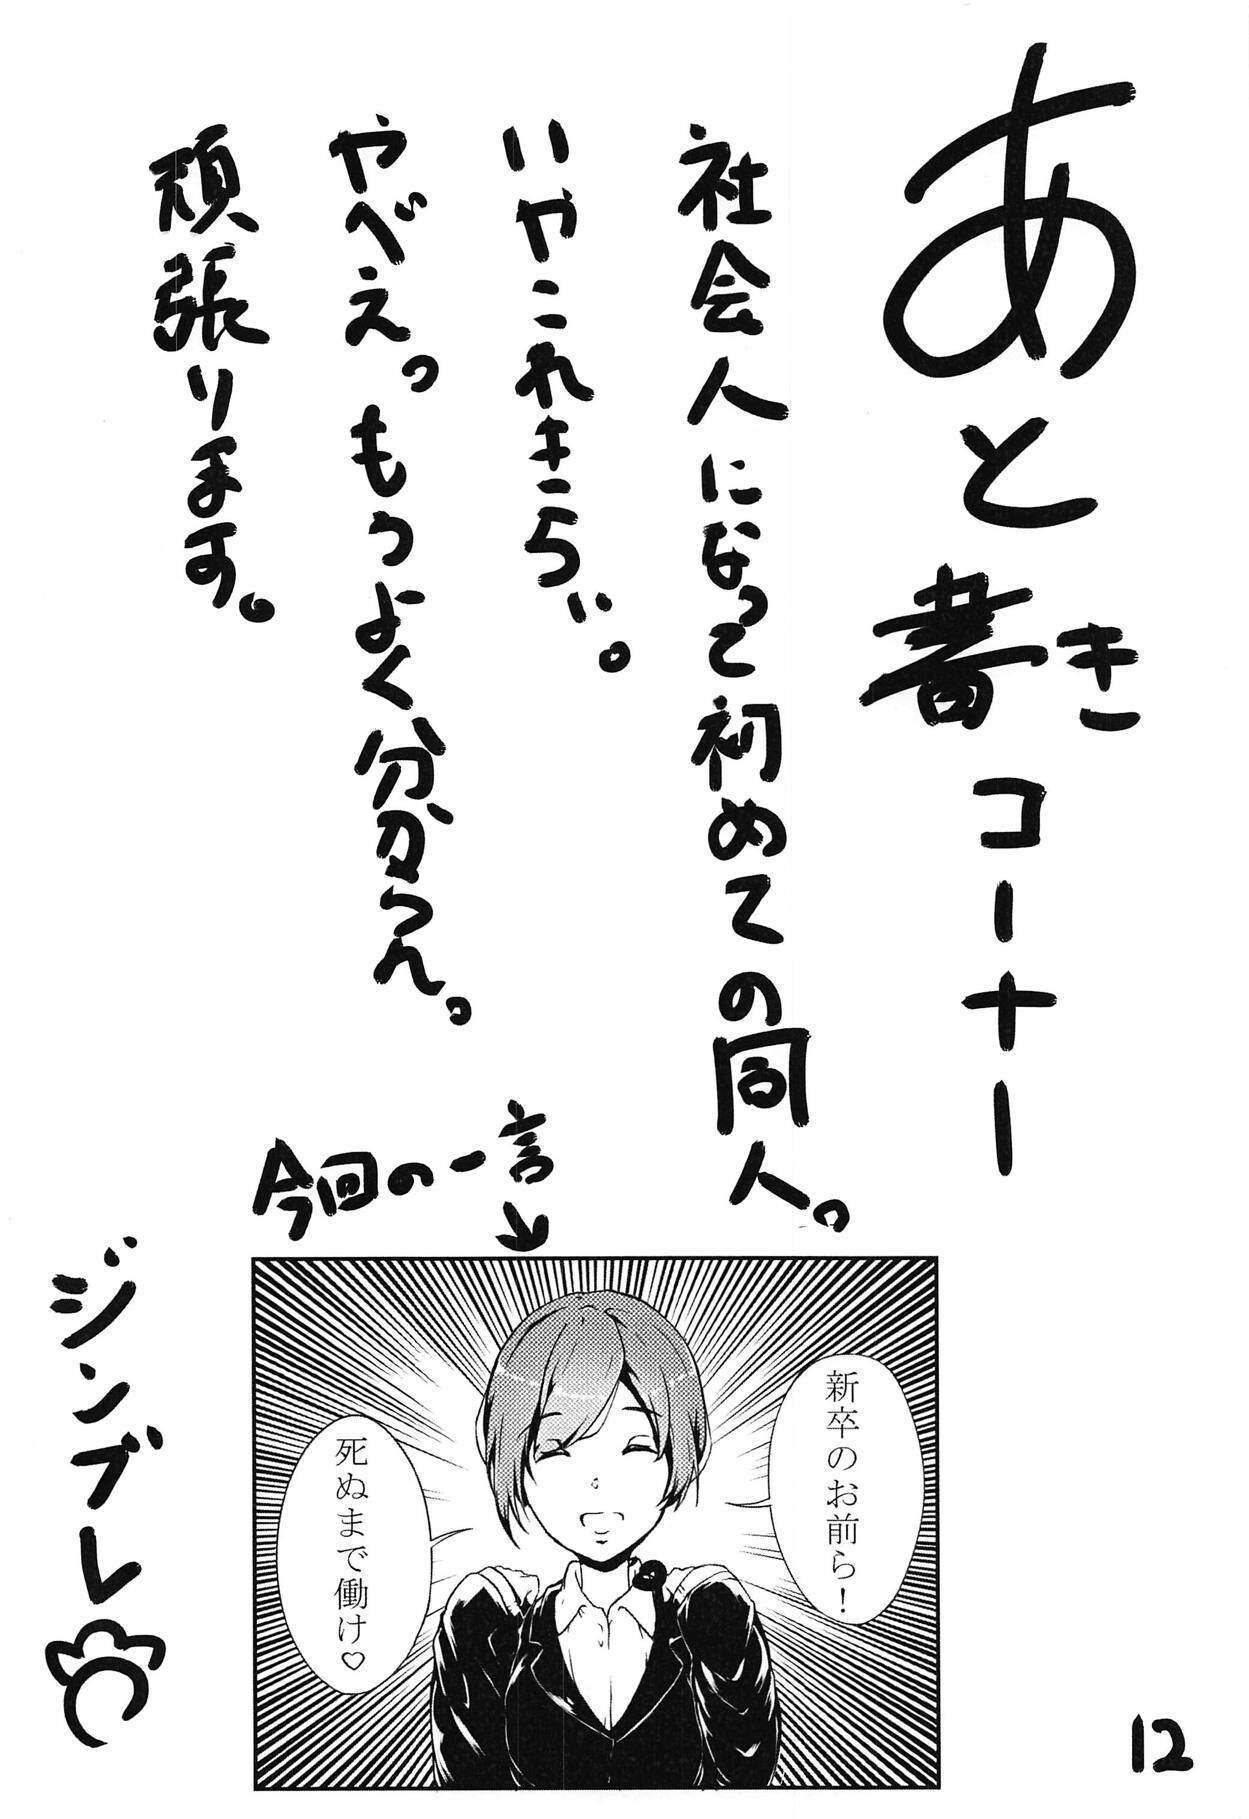 あと書きコーナー
社会人になって初めての同人。
いやこれきちぃ。
やべぇ。もうよく分からん。
頑張ります。
今回の一言
新卒のお前ら!
死ぬまで働け♡
ジンブレ
12